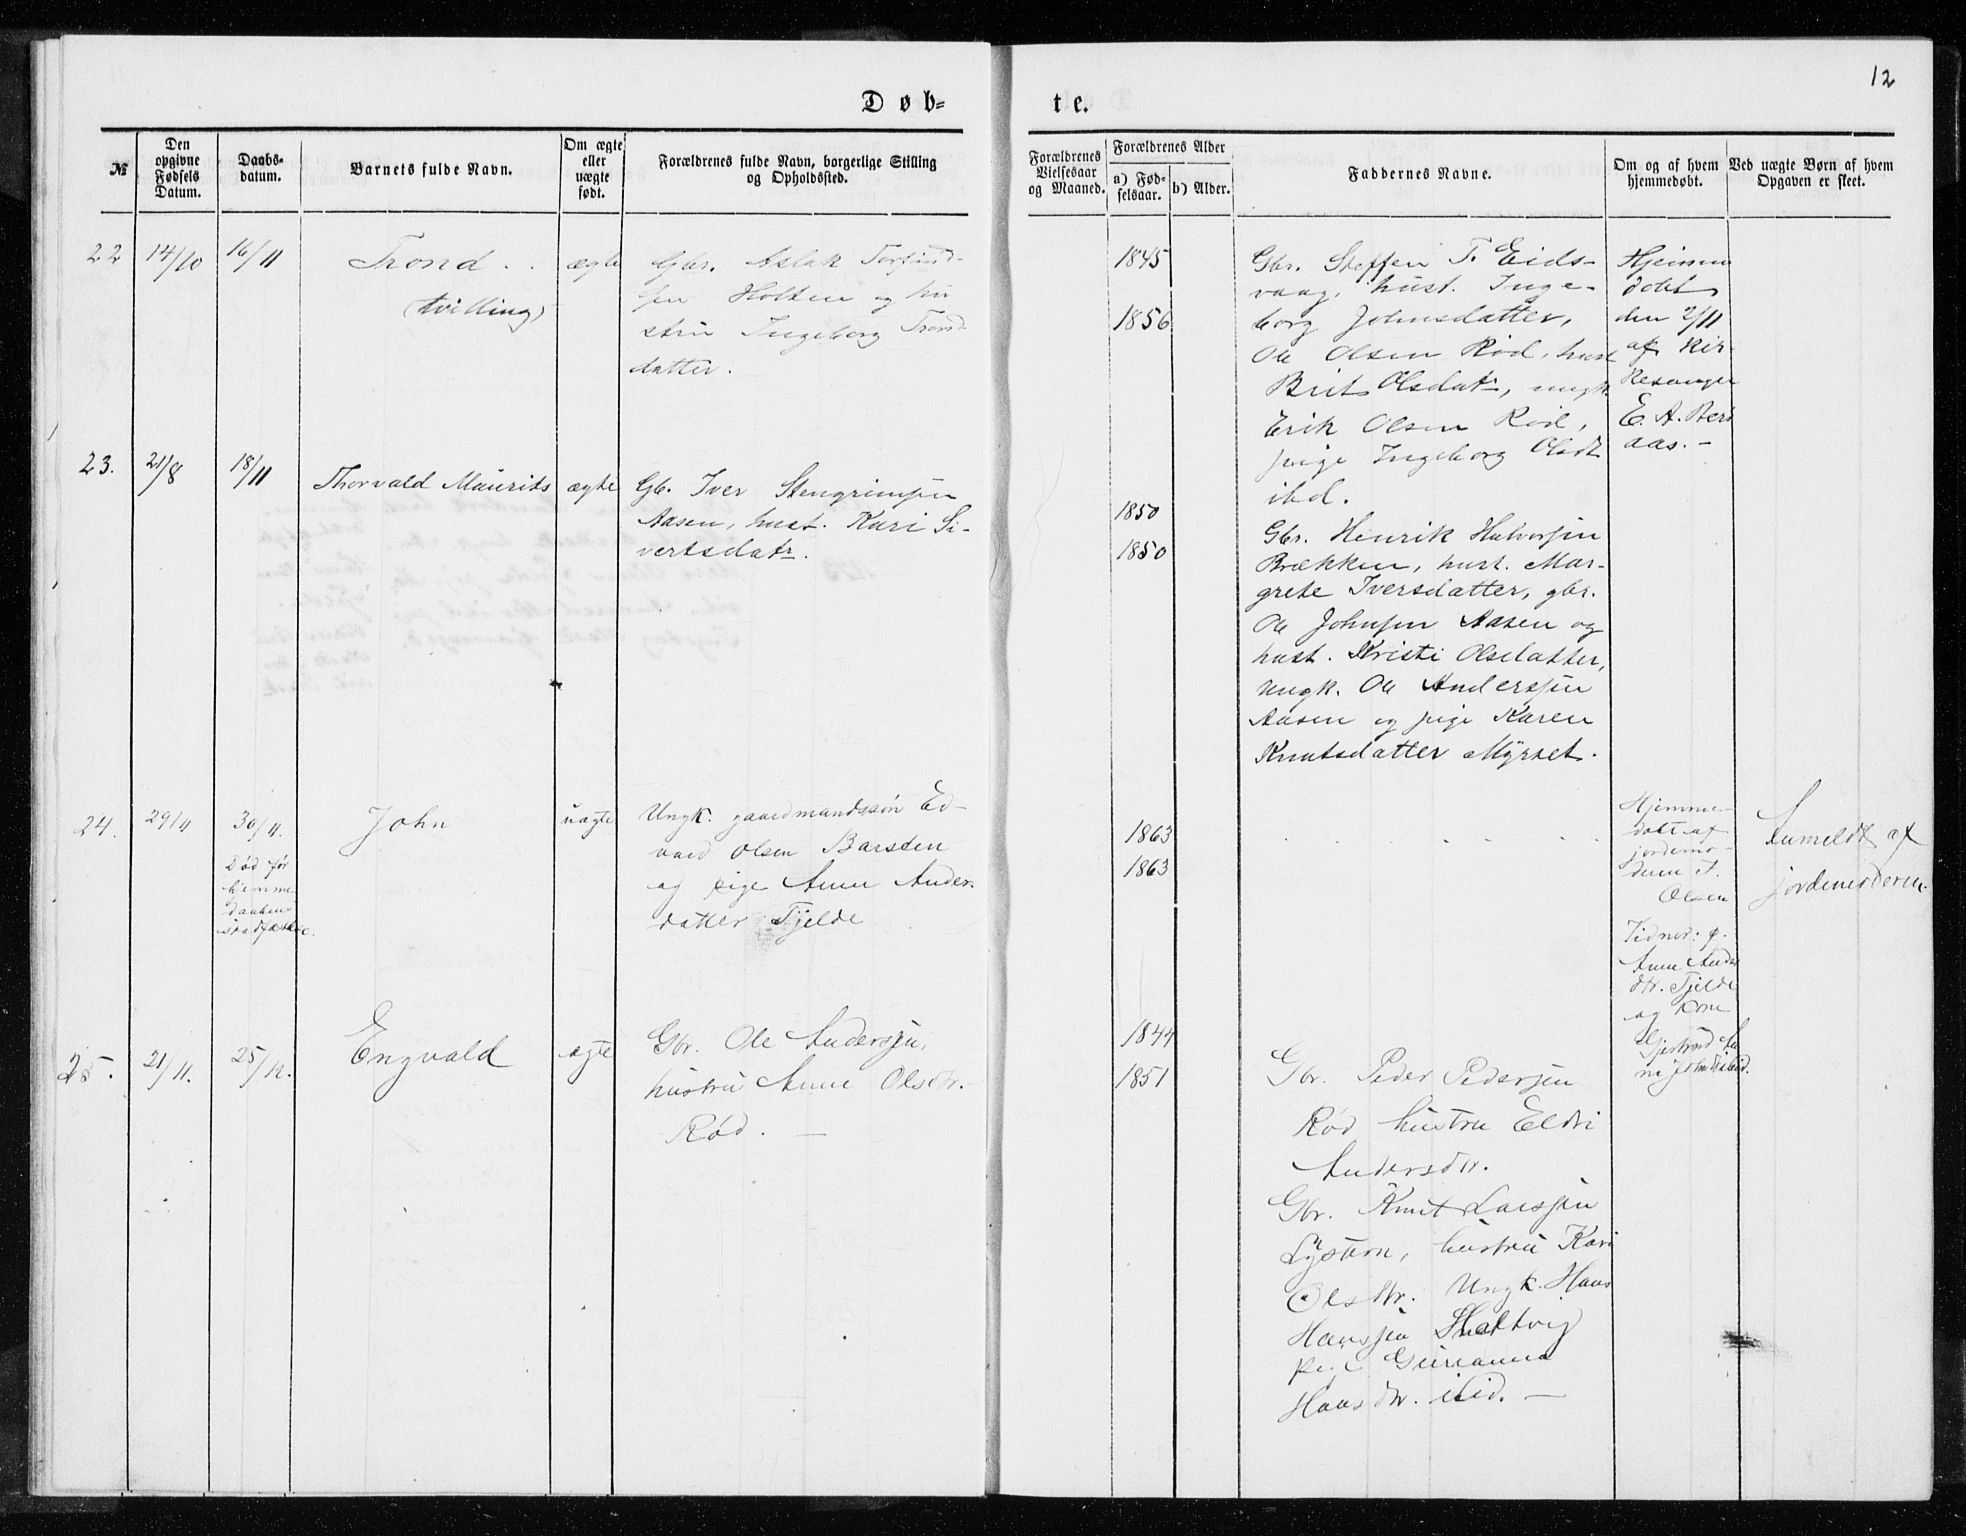 12
Døb-
te.
№
Den opgivne Fødsels Datum.
Daabs-datum.
Barnets fulde Navn.
Om ægte eller uægte født.
Forældrenes fulde Navn, borgerlige Stilling og Opholdssted.
Forældrenes Vielsesaar og Maaned.
Forældrenes Alder
a) Fød-selsaar.
b) Alder.
Faddernes Navne.
Om og af hvem hjemmedøbt.
Ved uægte Børn af hvem Opgaven er skeet.
22
14/10
16/11
Trond
(tvilling)
ægte
Gbr. Aslak Torfind-
sen Holten og hu
stru Ingeborg Trond
datter.
1845
1856
Gbr. Steffen T. Eids-
vaag, hust. Inge-
borg Johnsdatter,
Ole Olsen Rød, hust
Brit Olsdatr, ungk.
Erik Olsen Rød,
pige Ingeborg Olsdt
ibd.
Hjemme
døbt
den 2/11
af Kir-
kesanger
E. A. Berg
aas. -
23.
21/8
18/11
Thorvald Maurits
ægte
Gb. Iver Stengrimsen
Aasen, hust. Kari Si-
vertsdatr.
1850
1850
Gbr. Henrik Halvorsen
Brækken, hust. Mar-
grete Iversdatter, gbr.
Ole Johnsen Aasen og
hust. Kristi Olsdatter,
ungk. Ole Anderssen
Aasen og pige Karen
Knutsdatter Myrset.
24.
29/11
30/11.
Død før
hjemme
daaben
stadfæstec.
John
uægte
Ungk. gaardmandssøn Ed-
vard Olsen Barsten
og pige Anne Anders
datter Fjelde
1863
1863
Hjemme-
døbt af
jordemo-
deren I.
Olsen
Vidner: p.
Anne Anders
dtr. Fjelde
og Kone
Gjertrud
ibid.
Anmeldt af
jordemoderen.
25.
21/11.
25/12.
Engvald
ægte
Gbr. Ole Anderssen,
hustru Anne Olsdtr.
Rød. —
1844
1851
Gbr. Peder Pedersen
Rød hustru Eldri
Andersdtr.
Gbr. Knut Larssen
hustru Kari
Olsdtr. Ungk. Hans
Hanssen
pige Gurianna
Hansdtr. ibid. —